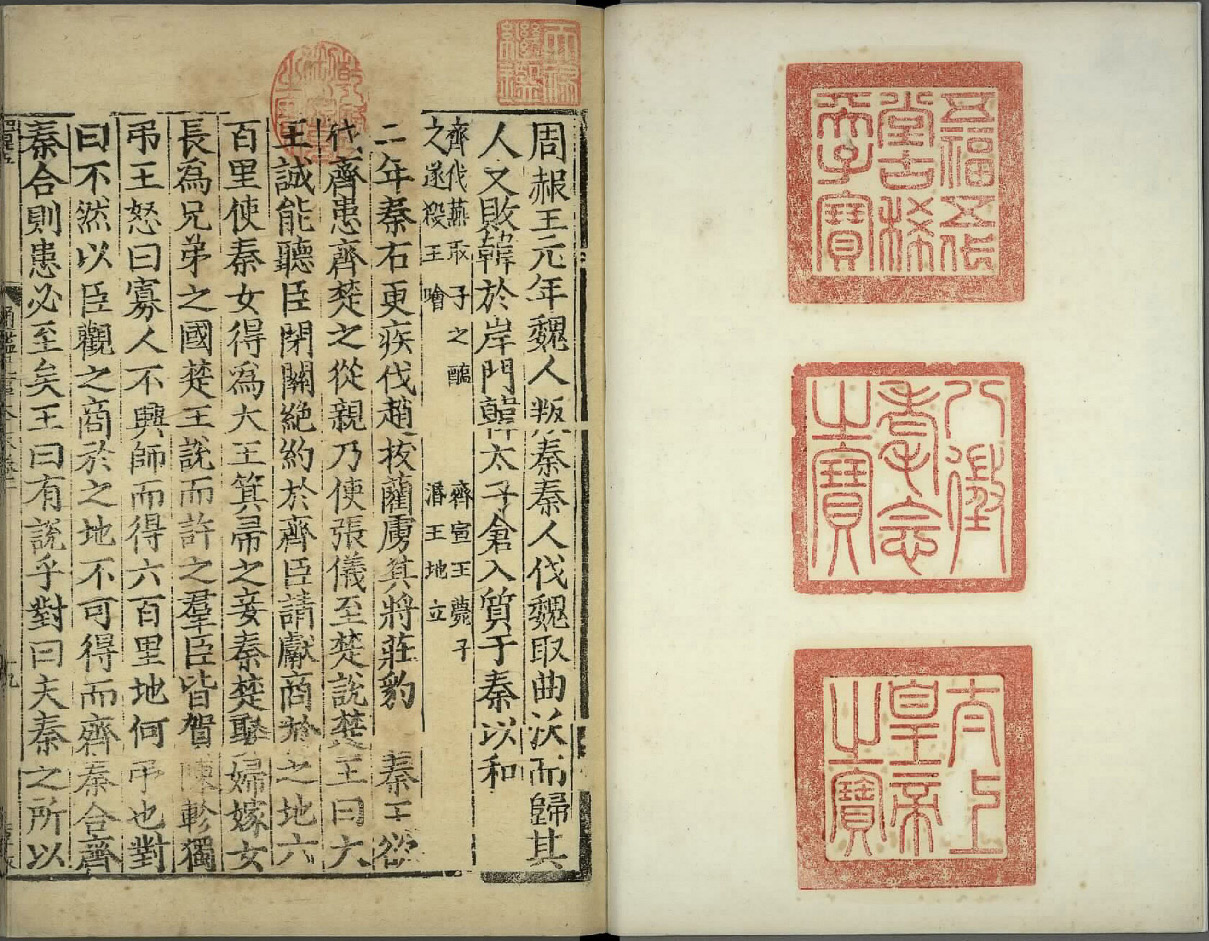 五福五代
堂古稀
天子寶
八徵
耄念
之寶
太上
皇帝
之寶
天祿
繼鑑
周赧王元年魏人叛秦秦人伐魏取曲沃而歸其
人又敗韓於岸門韓太子倉入質于秦以和
齊伐燕取子之醢
之遂殺王噲
齊宣王薨子
湣王地立
二年秦右更疾伐趙拔藺虜其將莊豹　秦王欲
伐齊患齊楚之從親乃使張儀至楚說楚王曰大
王誠能聽臣閉關絶約於齊臣請獻商於之地六
百里使秦女得爲大王箕帚之妾秦楚娶婦嫁女
長爲兄弟之國楚王說而許之羣臣皆賀陳軫獨
弔王怒曰寡人不興師而得六百里地何弔也對
曰不然以臣觀之商於之地不可得而齊秦合齊
秦合則患必至矣王曰有說乎對曰夫秦之所以